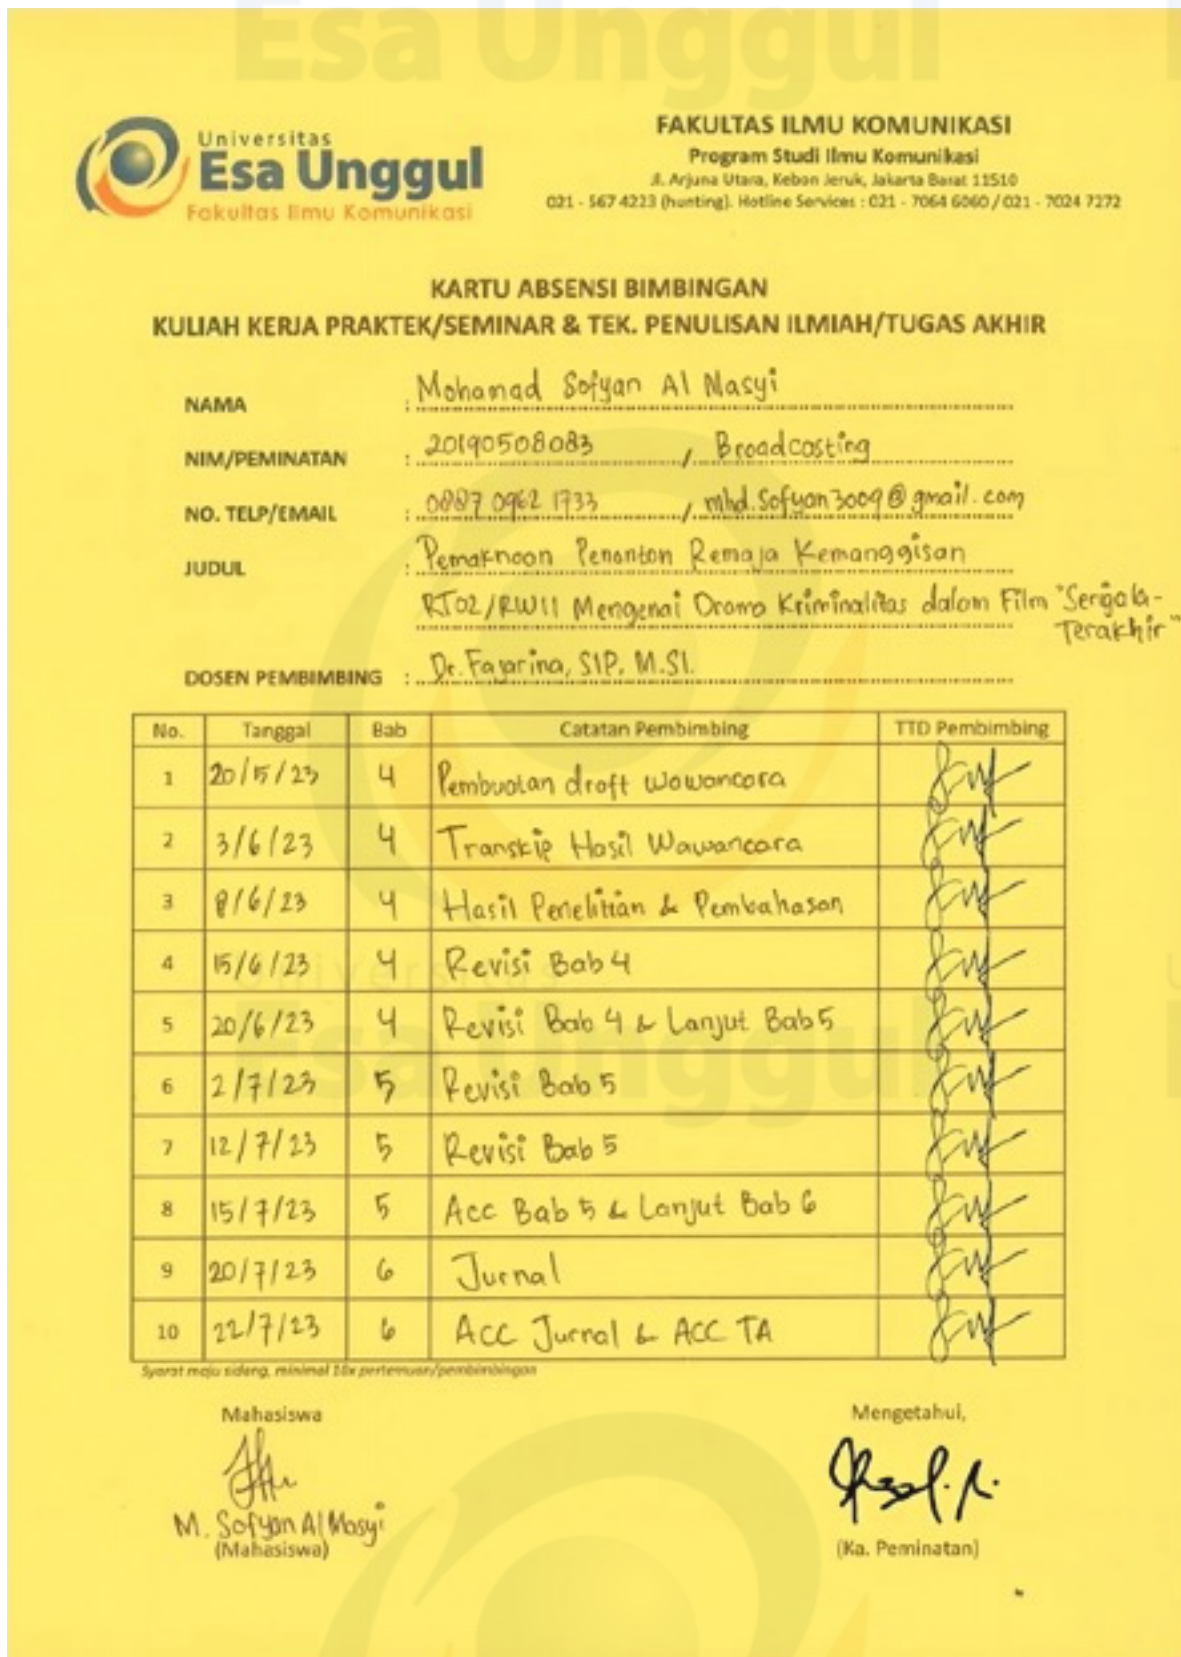 Esa Unggul
Universitas
Esa Unggul
Fakultas Ilmu Komunikasi
FAKULTAS ILMU KOMUNIKASI
Program Studi Ilmu Komunikasi
Jl. Arjuna Utara, Kebon Jeruk, Jakarta Barat 11510
021 - 567 4223 (hunting). Hotline Services : 021 - 7064 6060 / 021 - 7024 7272
KARTU ABSENSI BIMBINGAN
KULIAH KERJA PRAKTEK/SEMINAR & TEK. PENULISAN ILMIAH/TUGAS AKHIR
NAMA : Mohamad Sofyan Al Masyi
NIM/PEMINATAN : 20190508083 , Broadcasting
NO. TELP/EMAIL : 0887 0962 1733 , mhd.Sofyan3009@gmail.com
JUDUL : Pemaknaan Penonton Remaja Kemanggisan
RT02/RW11 Mengenai Drama Kriminalitas dalam Film "Serigala-
Terakhir"
DOSEN PEMBIMBING : Dr. Fajarina, SIP, M.SI.
No. Tanggal Bab Catatan Pembimbing TTD Pembimbing
1 20/5/23 4 Pembuatan draft wawancara
2 3/6/23 4 Transkip Hasil Wawancara
3 8/6/23 4 Hasil Penelitian & Pembahasan
4 15/6/23 4 Revisi Bab 4
5 20/6/23 4 Revisi Bab 4 & Lanjut Bab 5
6 2/7/23 5 Revisi Bab 5
7 12/7/23 5 Revisi Bab 5
8 15/7/23 5 Acc Bab 5 & Lanjut Bab 6
9 20/7/23 6 Jurnal
10 22/7/23 6 ACC Jurnal & ACC TA
Syarat maju sidang, minimal 10x pertemuan/pembimbingan
Mahasiswa Mengetahui,
M. Sofyan Al Masyi
(Mahasiswa) (Ka. Peminatan)